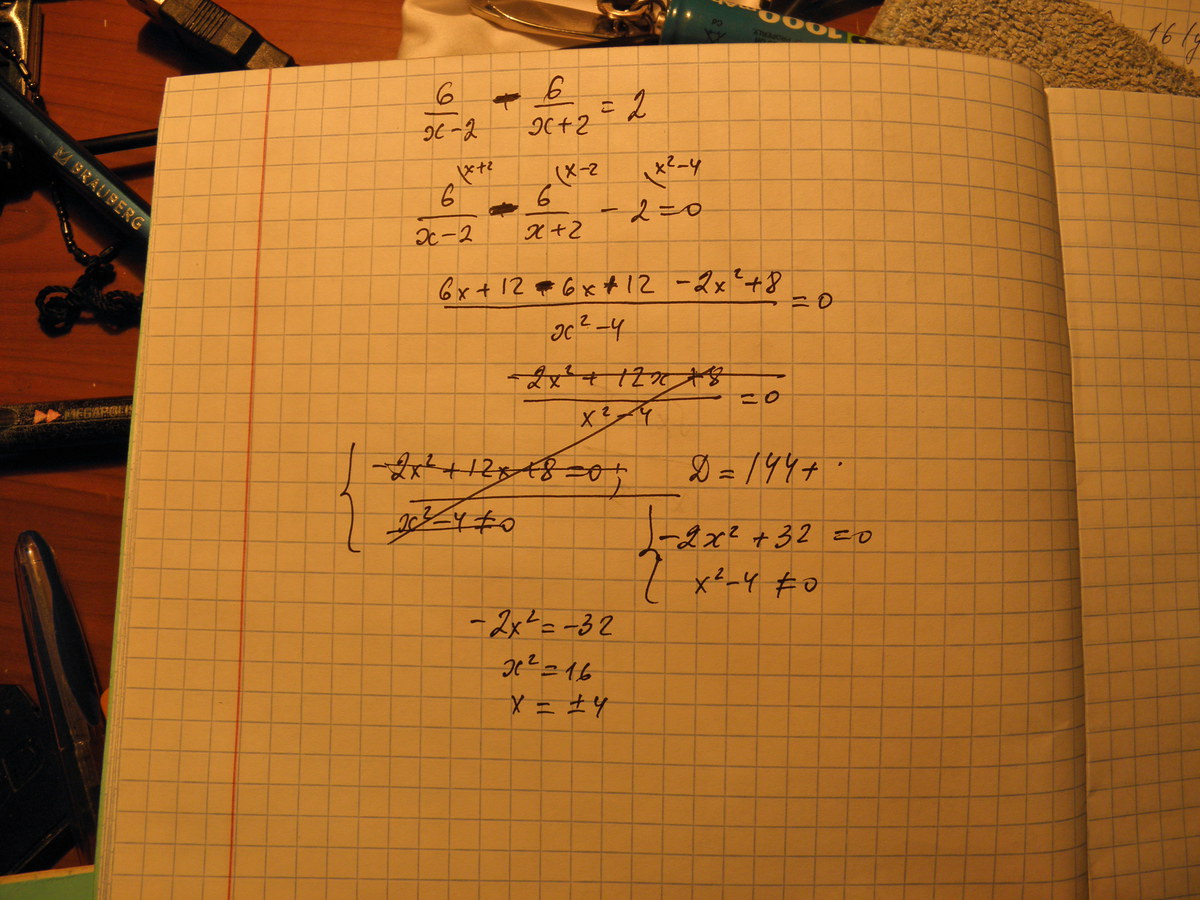 6/(x-2) - 6/(x+2) = 2
6/(x-2) \x+2 - 6/(x+2) \x-2 - 2 \x²-4 = 0
(6x+12 - 6x+12 - 2x²+8)/(x²-4) = 0
(-2x² + 12x +8)/(x²-4) = 0
{ -2x² + 12x +8 = 0; D = 144+
x²-4 ≠ 0
{ -2x² + 32 = 0
x²-4 ≠ 0
-2x² = -32
x² = 16
x = ±4
BRAUBERG
MEGAPOLIS
1000
16